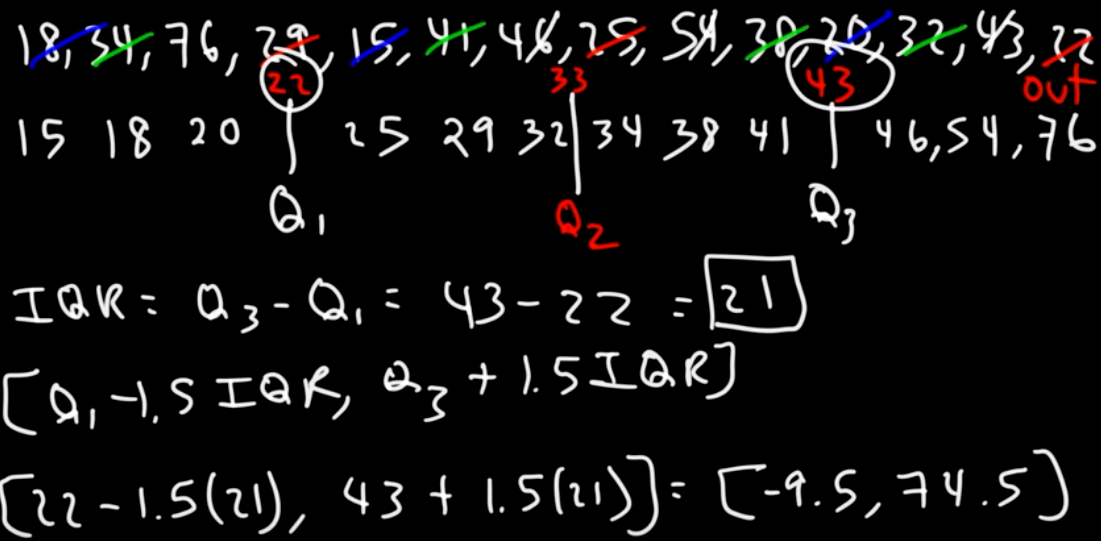 18, 34, 76, 29, 15, 41, 46, 25, 54, 38, 20, 32, 43, 22
22 33 43 out
15 18 20 | 25 29 32 | 34 38 41 | 46, 54, 76
Q1 Q2 Q3
IQR = Q3 - Q1 = 43 - 22 = 21
[Q1 - 1.5 IQR, Q3 + 1.5 IQR]
[22 - 1.5(21), 43 + 1.5(21)] = [-9.5, 74.5]